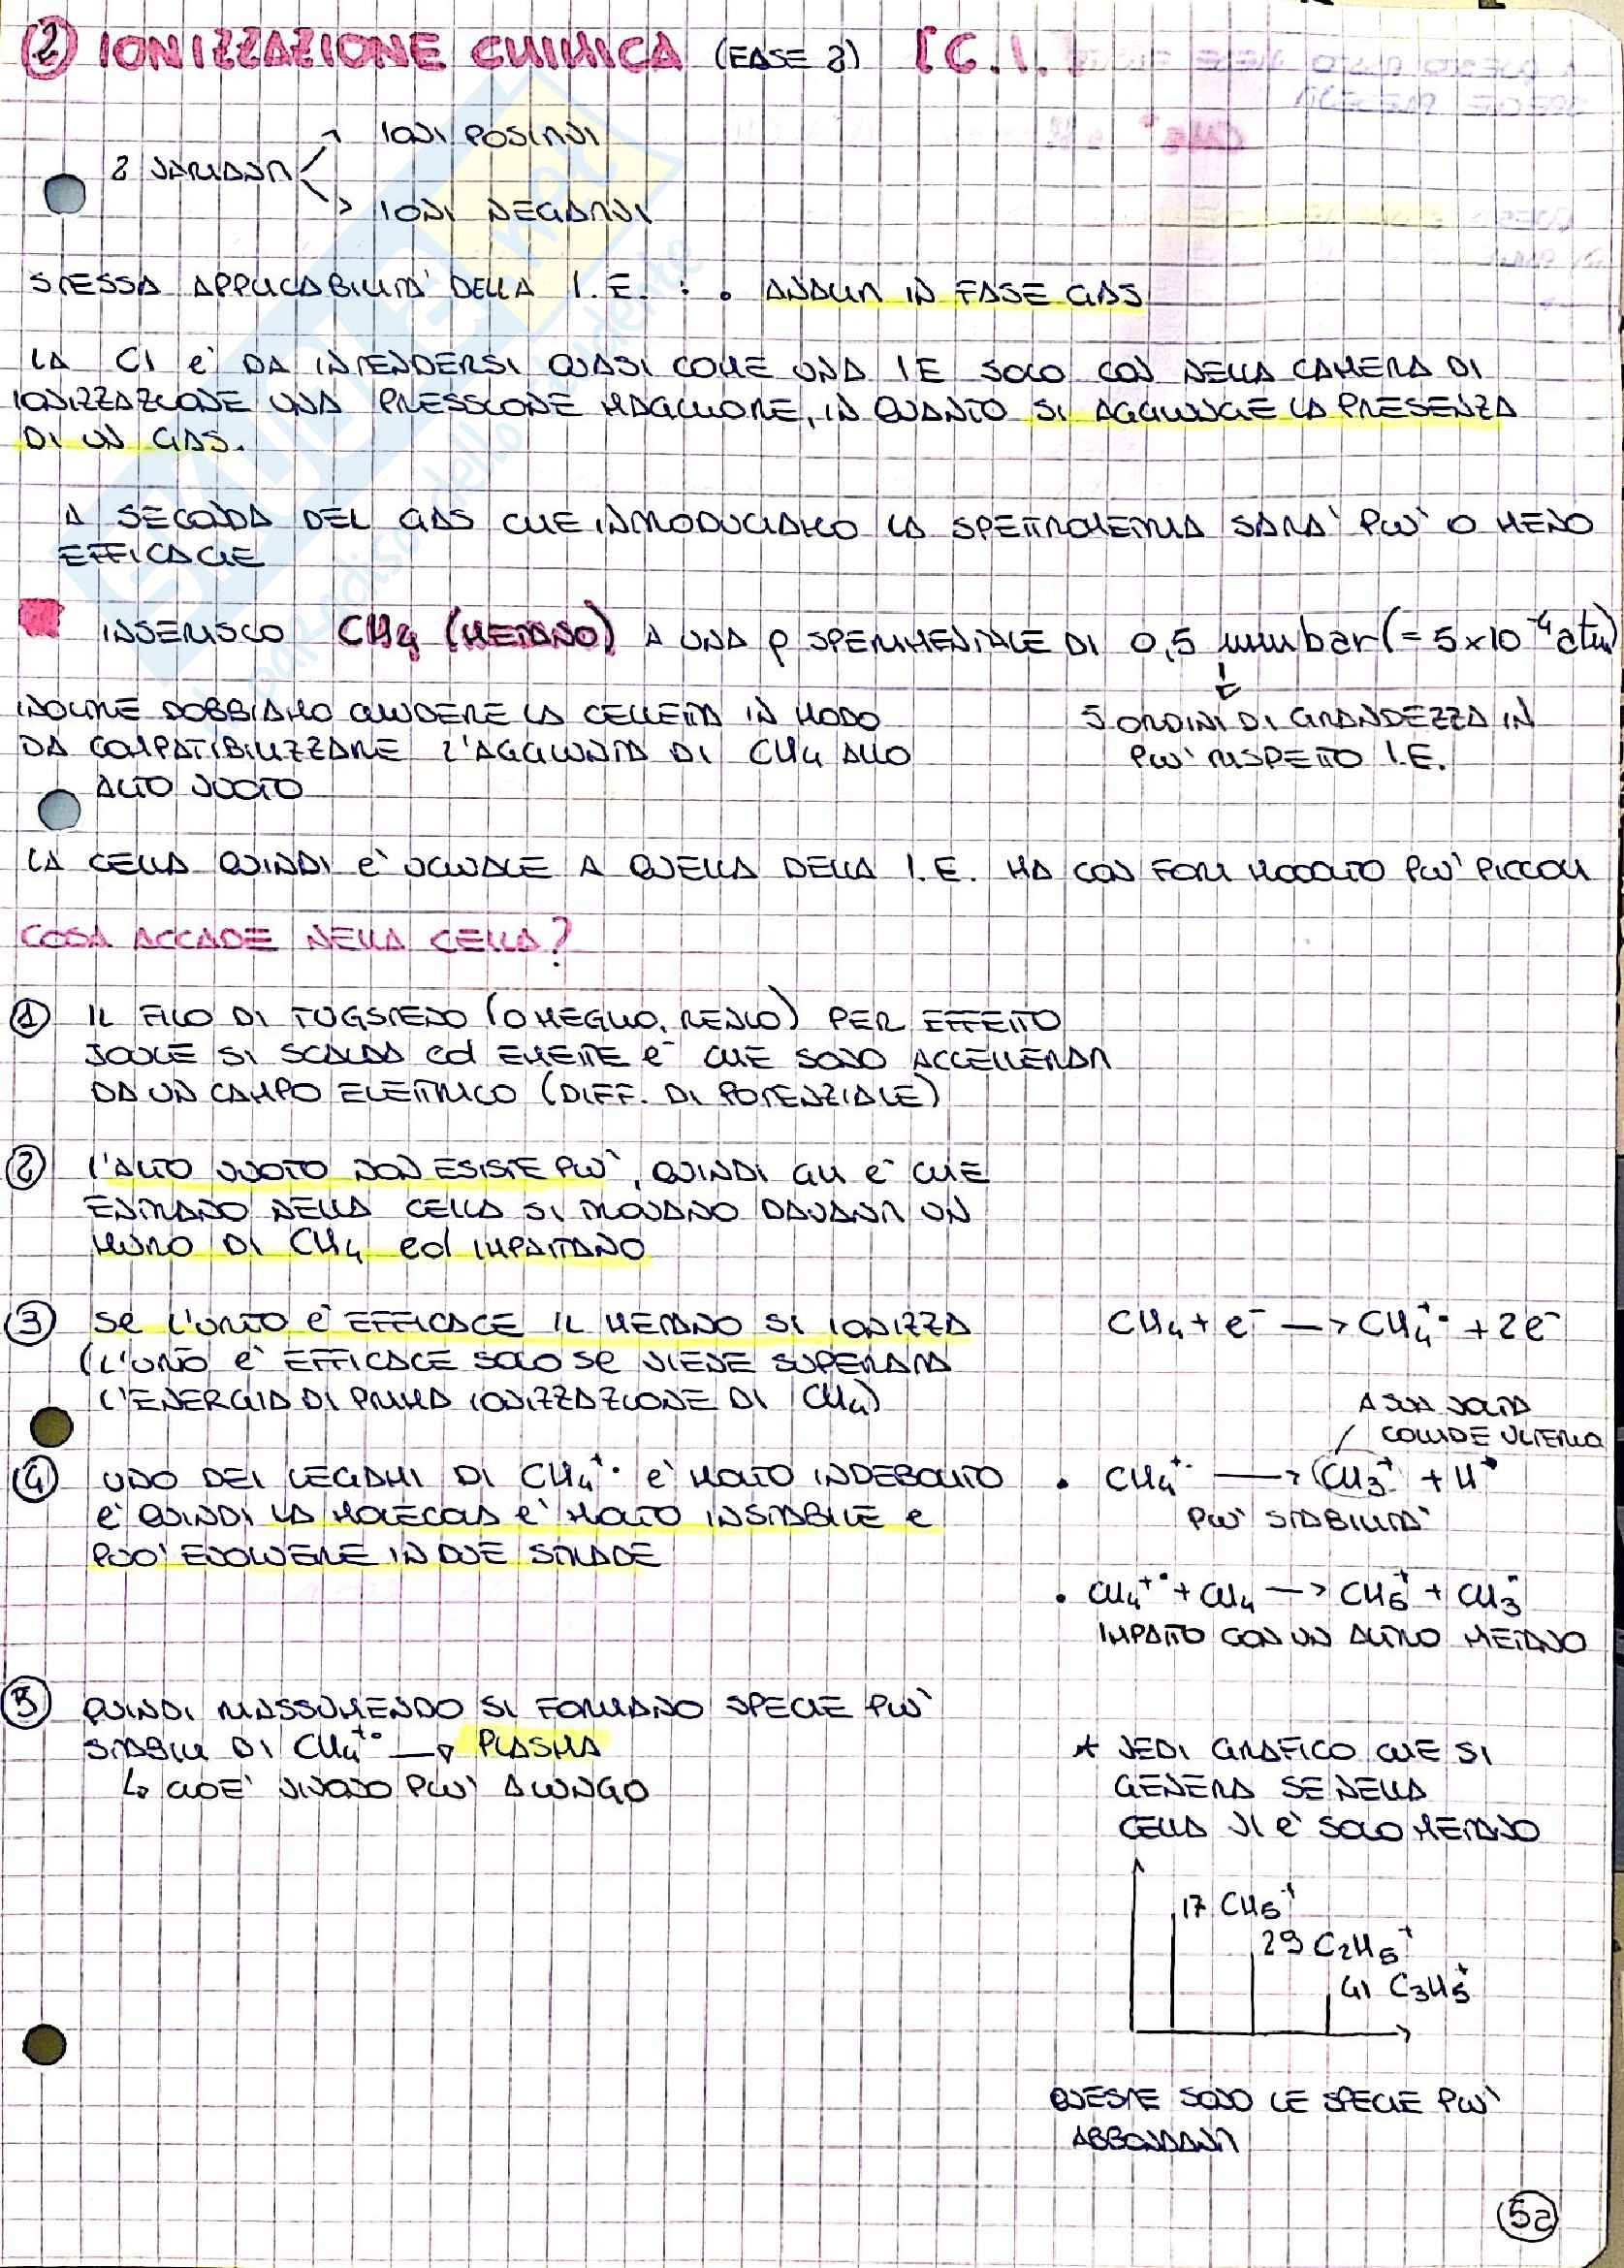 ② IONIZZAZIONE CHIMICA (FASE 2) [C.I.]
2 VARIANTI
IONI POSITIVI
IONI NEGATIVI
STESSA APPLICABILITA' DELLA I.E. : • ANALITI IN FASE GAS
LA CI e' DA INTENDERSI QUASI COME UNA IE SOLO CON NELLA CAMERA DI
IONIZZAZIONE UNA PRESSIONE MAGGIORE, IN QUANTO SI AGGIUNGE LA PRESENZA
DI UN GAS.
A SECONDA DEL GAS CHE INTRODUCIAMO LA SPETTROMETRIA SARA' PIU' O MENO
EFFICACIE
INSERISCO CH4 (METANO) A UNA p SPERIMENTALE DI 0,5 mmbar (= 5x10⁻⁴ atm)
INOLTRE DOBBIAMO CHIUDERE LA CELLETTA IN MODO
DA COMPATIBILIZZARE L'AGGIUNTA DI CH4 ALLO
ALTO VUOTO
5 ORDINI DI GRANDEZZA IN
PIU' RISPETTO I.E.
LA CELLA QUINDI e' UGUALE A QUELLA DELLA I.E. MA CON FORI MOOOLTO PIU' PICCOLI
COSA ACCADE NELLA CELLA?
① IL FILO DI TUGSTENO (O MEGLIO, RENIO) PER EFFETTO
JOULE SI SCALDA ed EMETTE e⁻ CHE SONO ACCELLERATI
DA UN CAMPO ELETTRICO (DIFF. DI POTENZIALE)
② L'ALTO VUOTO NON ESISTE PIU', QUINDI GLI e⁻ CHE
ENTRANO NELLA CELLA SI TROVANO DAVANTI UN
MURO DI CH4 ed IMPATTANO
③ SE L'URTO e' EFFICACE IL METANO SI IONIZZA
(L'URTO e' EFFICACE SOLO SE VIENE SUPERATA
L'ENERGIA DI PRIMA IONIZZAZIONE DI CH4)
CH4 + e⁻ → CH4⁺• + 2e⁻
④ UNO DEI LEGAMI DI CH4⁺• e' MOLTO INDEBOLITO
e' QUINDI LA MOLECOLA e' MOLTO INSTABILE e
PUO' EVOLVERE IN DUE STRADE
A SUA VOLTA
COLLIDE ULTERIO
• CH4⁺• → CH3⁺ + H•
PIU' STABILITA'
• CH4⁺• + CH4 → CH5⁺ + CH3•
IMPATTO CON UN ALTRO METANO
⑤ QUINDI RIASSUMENDO SI FORMANO SPECIE PIU'
STABILI DI CH4⁺• → PLASMA
↳ CIOE' VIVONO PIU' A LUNGO
* VEDI GRAFICO CHE SI
GENERA SE NELLA
CELLA VI e' SOLO METANO
17 CH5⁺
29 C2H5⁺
41 C3H5⁺
QUESTE SONO LE SPECIE PIU'
ABBONDANTI
5a